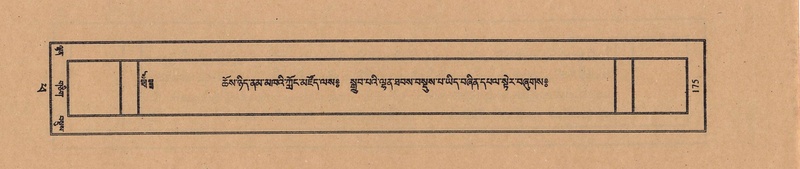 ཆོས་ཉིད་ནམ་མཁའི་ཀློང་མཛོད་ལས༔ སྒྲུབ་པའི་ལྷན་ཐབས་བསྡུས་པ་ཡིད་བཞིན་དཔལ་སྟེར་བཞུགས༔
175